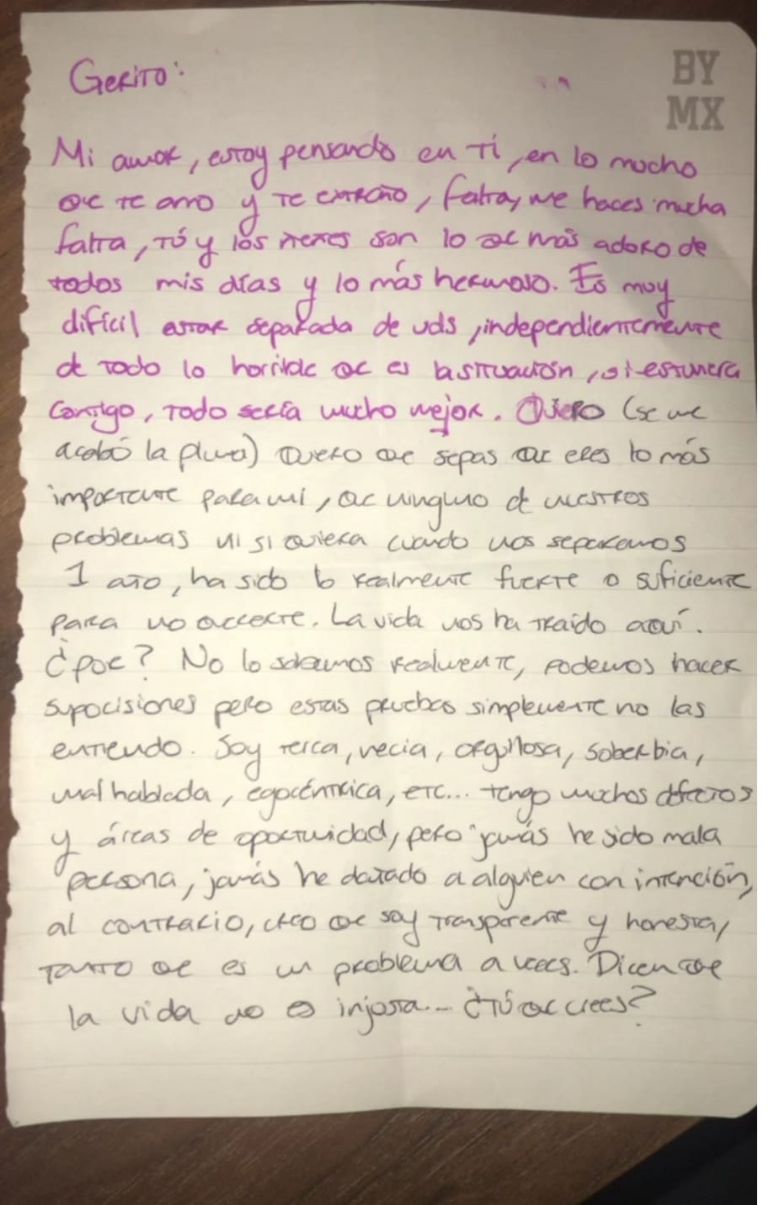 BY
MX
Gerito:
Mi amor, estoy pensando en Ti, en lo mucho
qe te amo y te extraño, falta, me haces mucha
falta, Tú y los nenes son lo qe más adoro de
todos mis días y lo más hermoso. Es muy
difícil estar separada de uds, independientemente
de todo lo horrible qe es la situación, si estuviera
contigo, todo sería mucho mejor. Quiero (se me
acabó la pluma) Quiero qe sepas qe eres lo más
importante para mi, qe ninguno de nuestros
problemas ni si quiera cuando nos separamos
1 año, ha sido lo realmente fuerte o suficiente
para no qererte. La vida nos ha traído aquí.
¿pqe? No lo sabemos realmente, podemos hacer
suposiciones pero estas pruebas simplemente no las
entiendo. Soy terca, necia, orgullosa, soberbia,
mal hablada, egocéntrica, etc... tengo muchos defectos
y áreas de oportunidad, pero jamás he sido mala
persona, jamás he dañado a alguien con intención,
al contrario, creo qe soy transparente y honesta,
tanto qe es un problema a veces. Dicen qe
la vida no es injusta... ¿Tú qe crees?